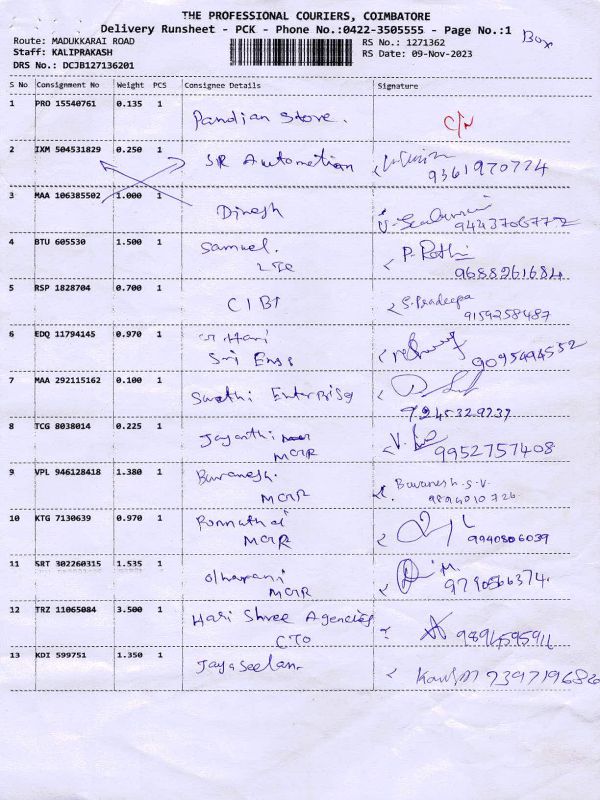 THE PROFESSIONAL COURIERS, COIMBATORE
Delivery Runsheet - PCK - Phone No.:0422-3505555 - Page No.:1
Box
Route: MADUKKARAI ROAD
RS No.: 1271362
Staff: KALIPRAKASH
RS Date: 09-Nov-2023
DRS No.: DCJB127136201
S No Consignment No Weight PCS Consignee Details Signature
1 PRO 15540761 0.135 1
Pandian Store.
C/N
2 IXM 504531829 0.250 1
SR Automation
9361970774
3 MAA 106385502 1.000 1
Dinesh
9443706772
4 BTU 605530 1.500 1
Samuel.
P. Rathi
9688261684
5 RSP 1828704 0.700 1
CIBI
S. Pradeepa
9159258487
6 EDQ 11794145 0.970 1
Hari
Sri Engs
9095494552
7 MAA 292115162 0.100 1
Swathi Enterprise
8 TCG 8038014 0.225 1
Jayanthi
MGR
9952757408
9 VPL 946128418 1.380 1
Buvanesh.
MGR
Buvanesh.S.V.
9894010726
10 KTG 7130639 0.970 1
Ponnathai
MGR
9940806039
11 SRT 302260315 1.535 1
MGR
M.
9790566374
12 TRZ 11065084 3.500 1
Hari Shree Agencies
CTO
9894595911
13 KDI 599751 1.350 1
Jayaseelan
7397179682